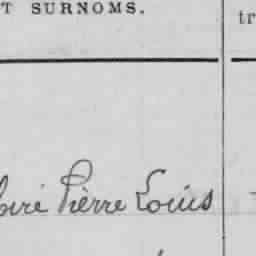 T SURNOMS.
tr
Pierre Louis